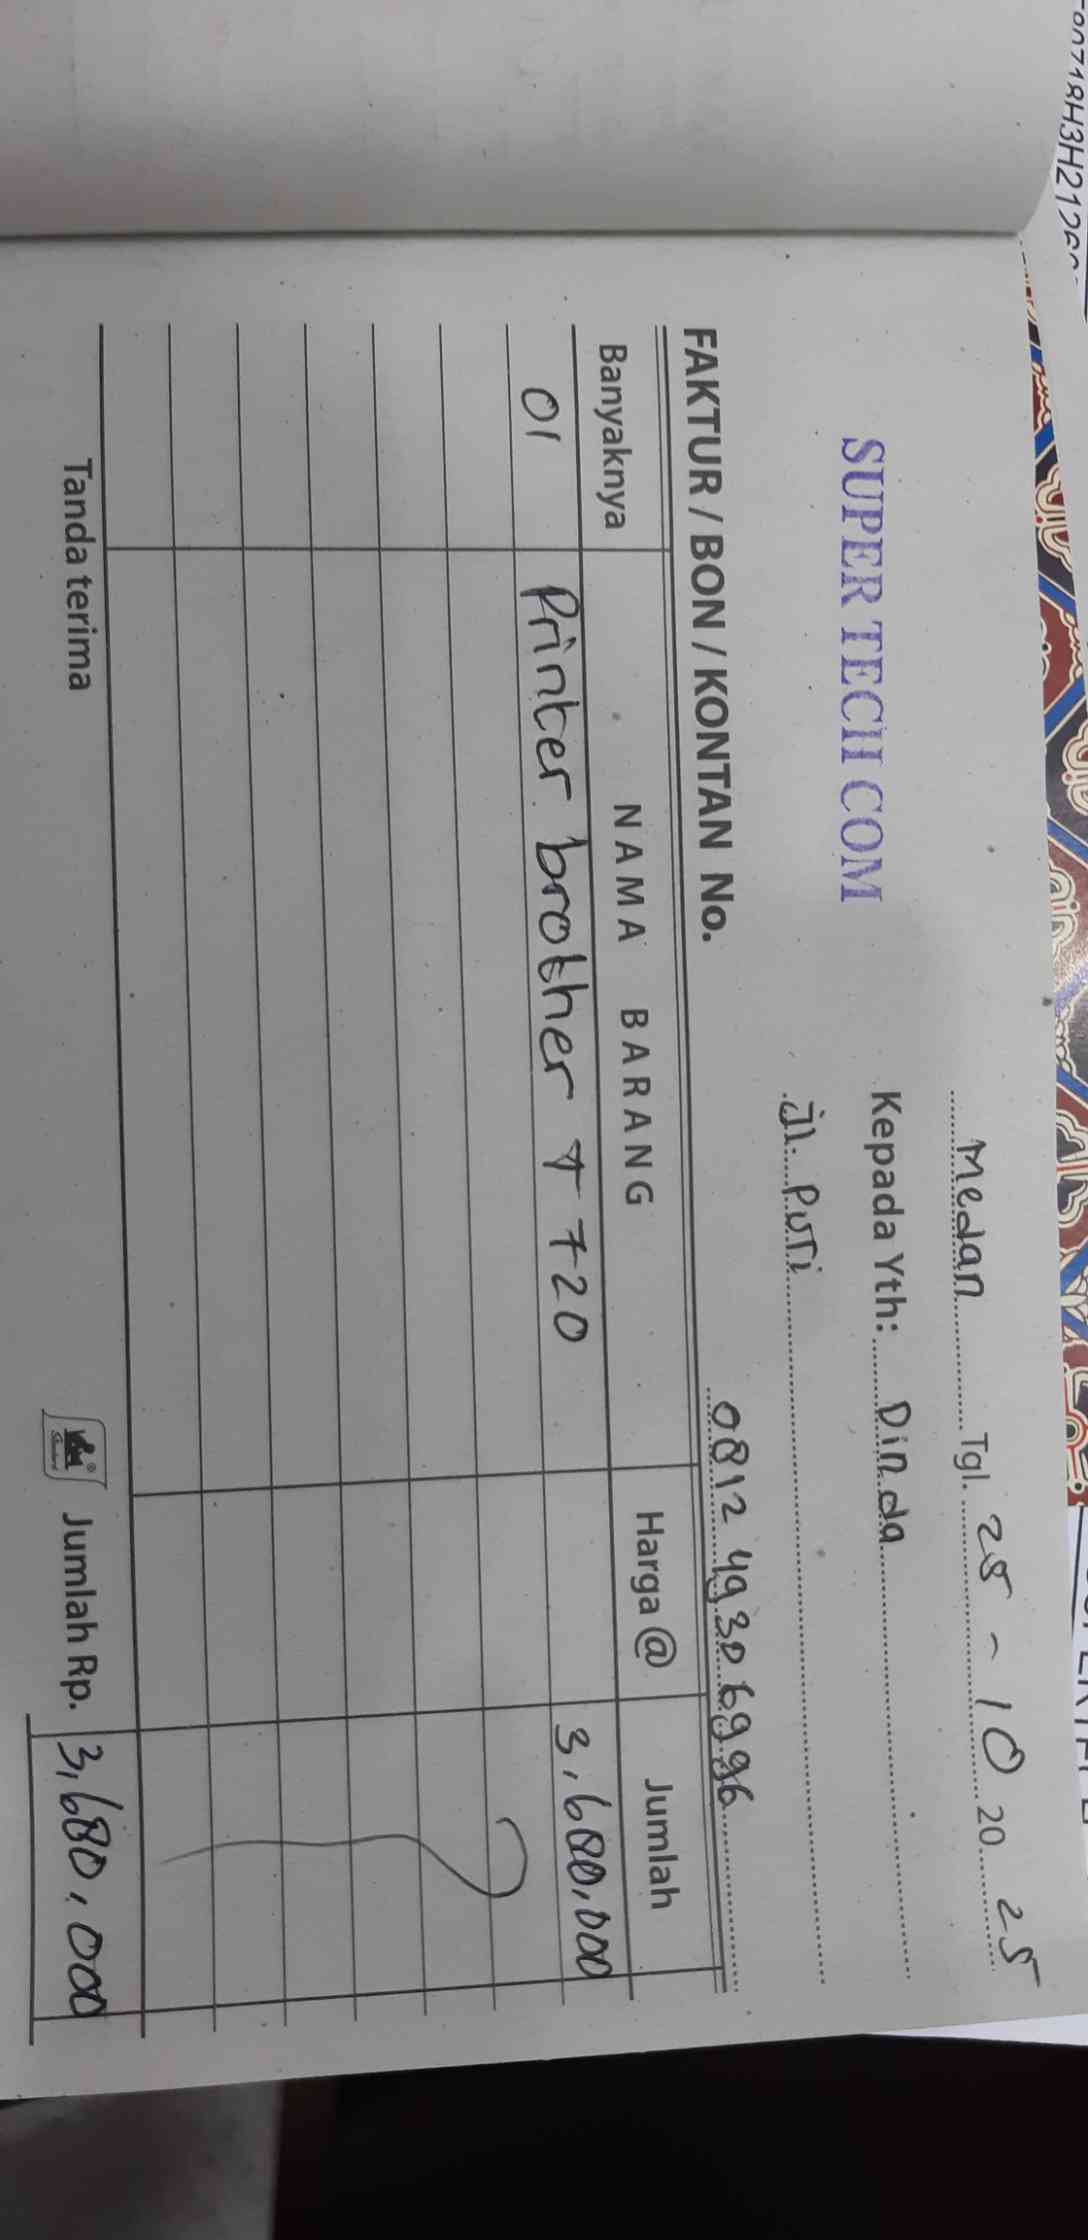 Medan Tgl. 25 - 10 20 25
SUPER TECH COM
Kepada Yth: Dinda
Jl. Puri
0812 4930 6996
FAKTUR / BON / KONTAN No.
Banyaknya NAMA BARANG Harga @ Jumlah
01 Printer brother T 720 3,680,000
Tanda terima Jumlah Rp. 3,680,000